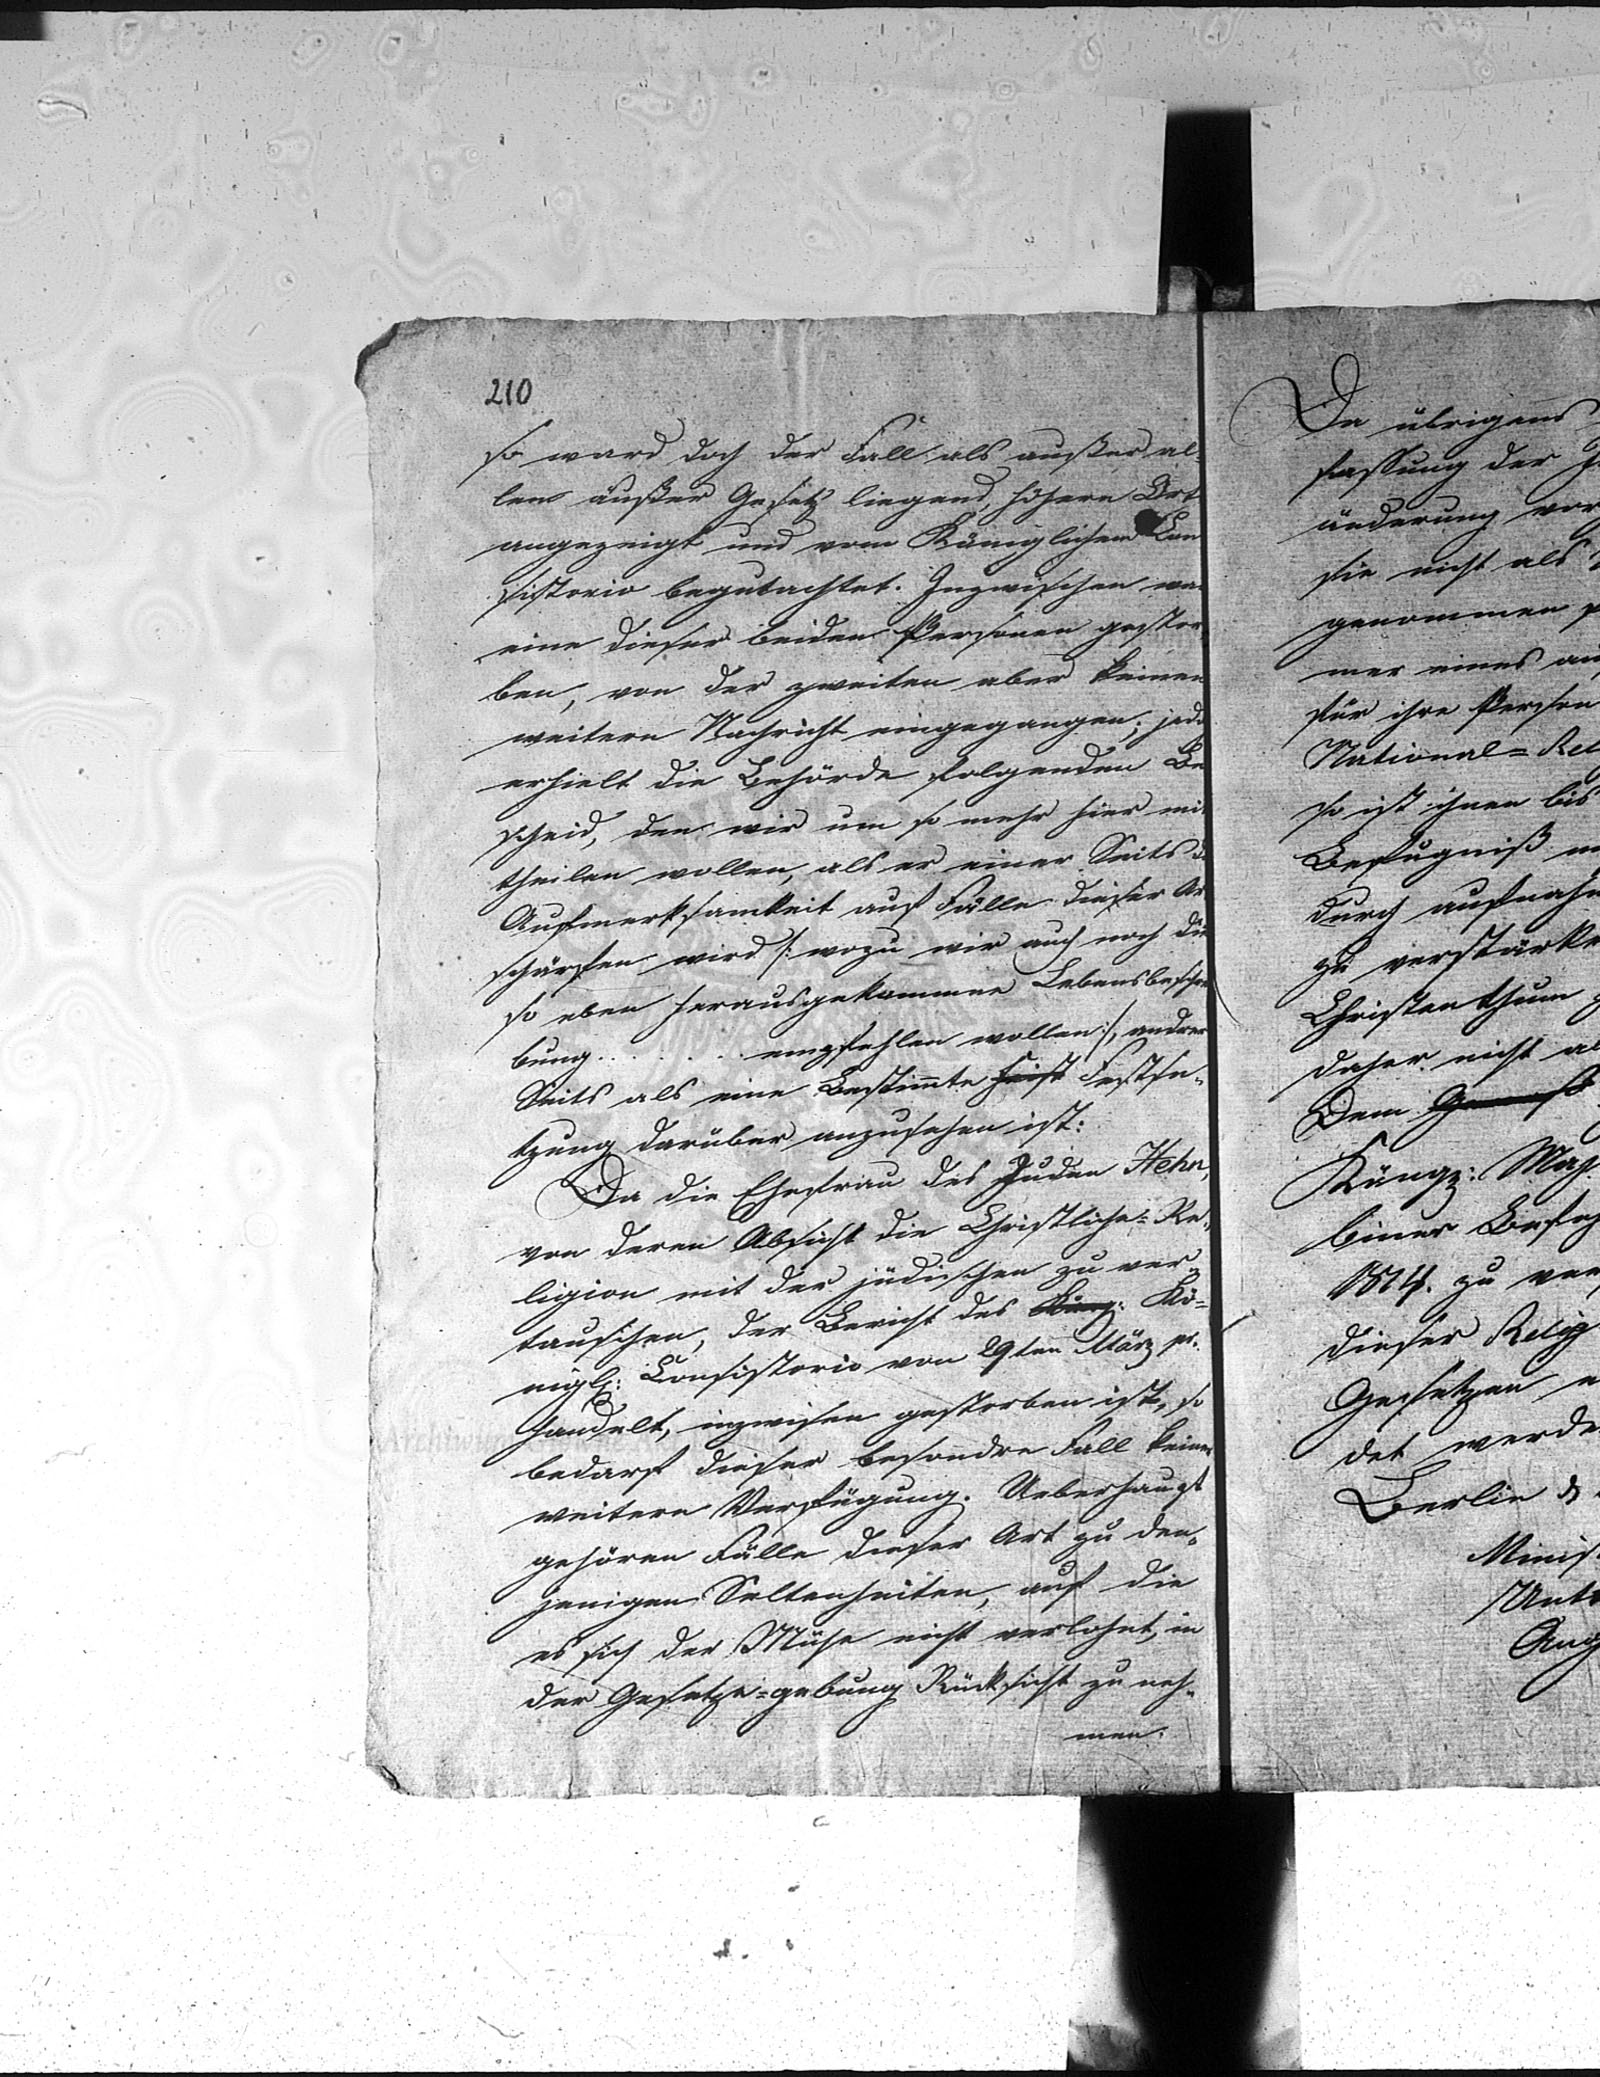 210
so ward doch der Fall als außer al-
lem äußer Gesetz liegend, höhern Ort
angezeigt und vom Königlichem Con
sistorio begutachtet. Inzwischen war
eine dieser beiden Personen gestor-
ben, von der zweiten aber keinen
weitern Nachricht eingegangen; jedo
erhielt die Behörde folgenden Be
scheid, den wir um so mehr hier mit
theilen wollen, als er einer Seits d
Aufmerksamkeit auf Fälle dieser Ar
schärfen wird /: wozu wir auch noch die
so eben herausgekommne Lebensbeschrei
bung . . . . . . . empfehlen wollen :/, andrer
Seits als eine Bestimte Festse-
tzung darüber anzusehen ist:
Da die Ehefrau des Juden Hehn,
von deren Absicht die Christliche-Re-
ligion mit der jüdischen zu ver-
tauschen, der Bericht des König: Kö-
nigl: Consistorio von 29ten März pr.
handelt, inzwisen gestorben ist, so
bedarf dieser besondre Fall keiner
weitern Verfügung. Ueberhaupt
gehören Fälle dieser Art zu den-
jenigen Seltenheiten, auf die
es sich der Mühe nicht verlohnt, in
der Gesetze-gebung Rücksicht zu neh-
men.
Da übrigens
fassung der J
änderung vor
sie nicht als
genommen
mer eines
für ihre Person
National-Rel
so ist ihnen bis
Befugniß
durch aufnahm
zu verstärken
Christenthum
daher nicht al
Dem
Köngz: Maj.
binets Befeh
1814. zu ver
dieser Relig
Gesetzen
det werde
Berlin d
Minis
/Unt
Aug